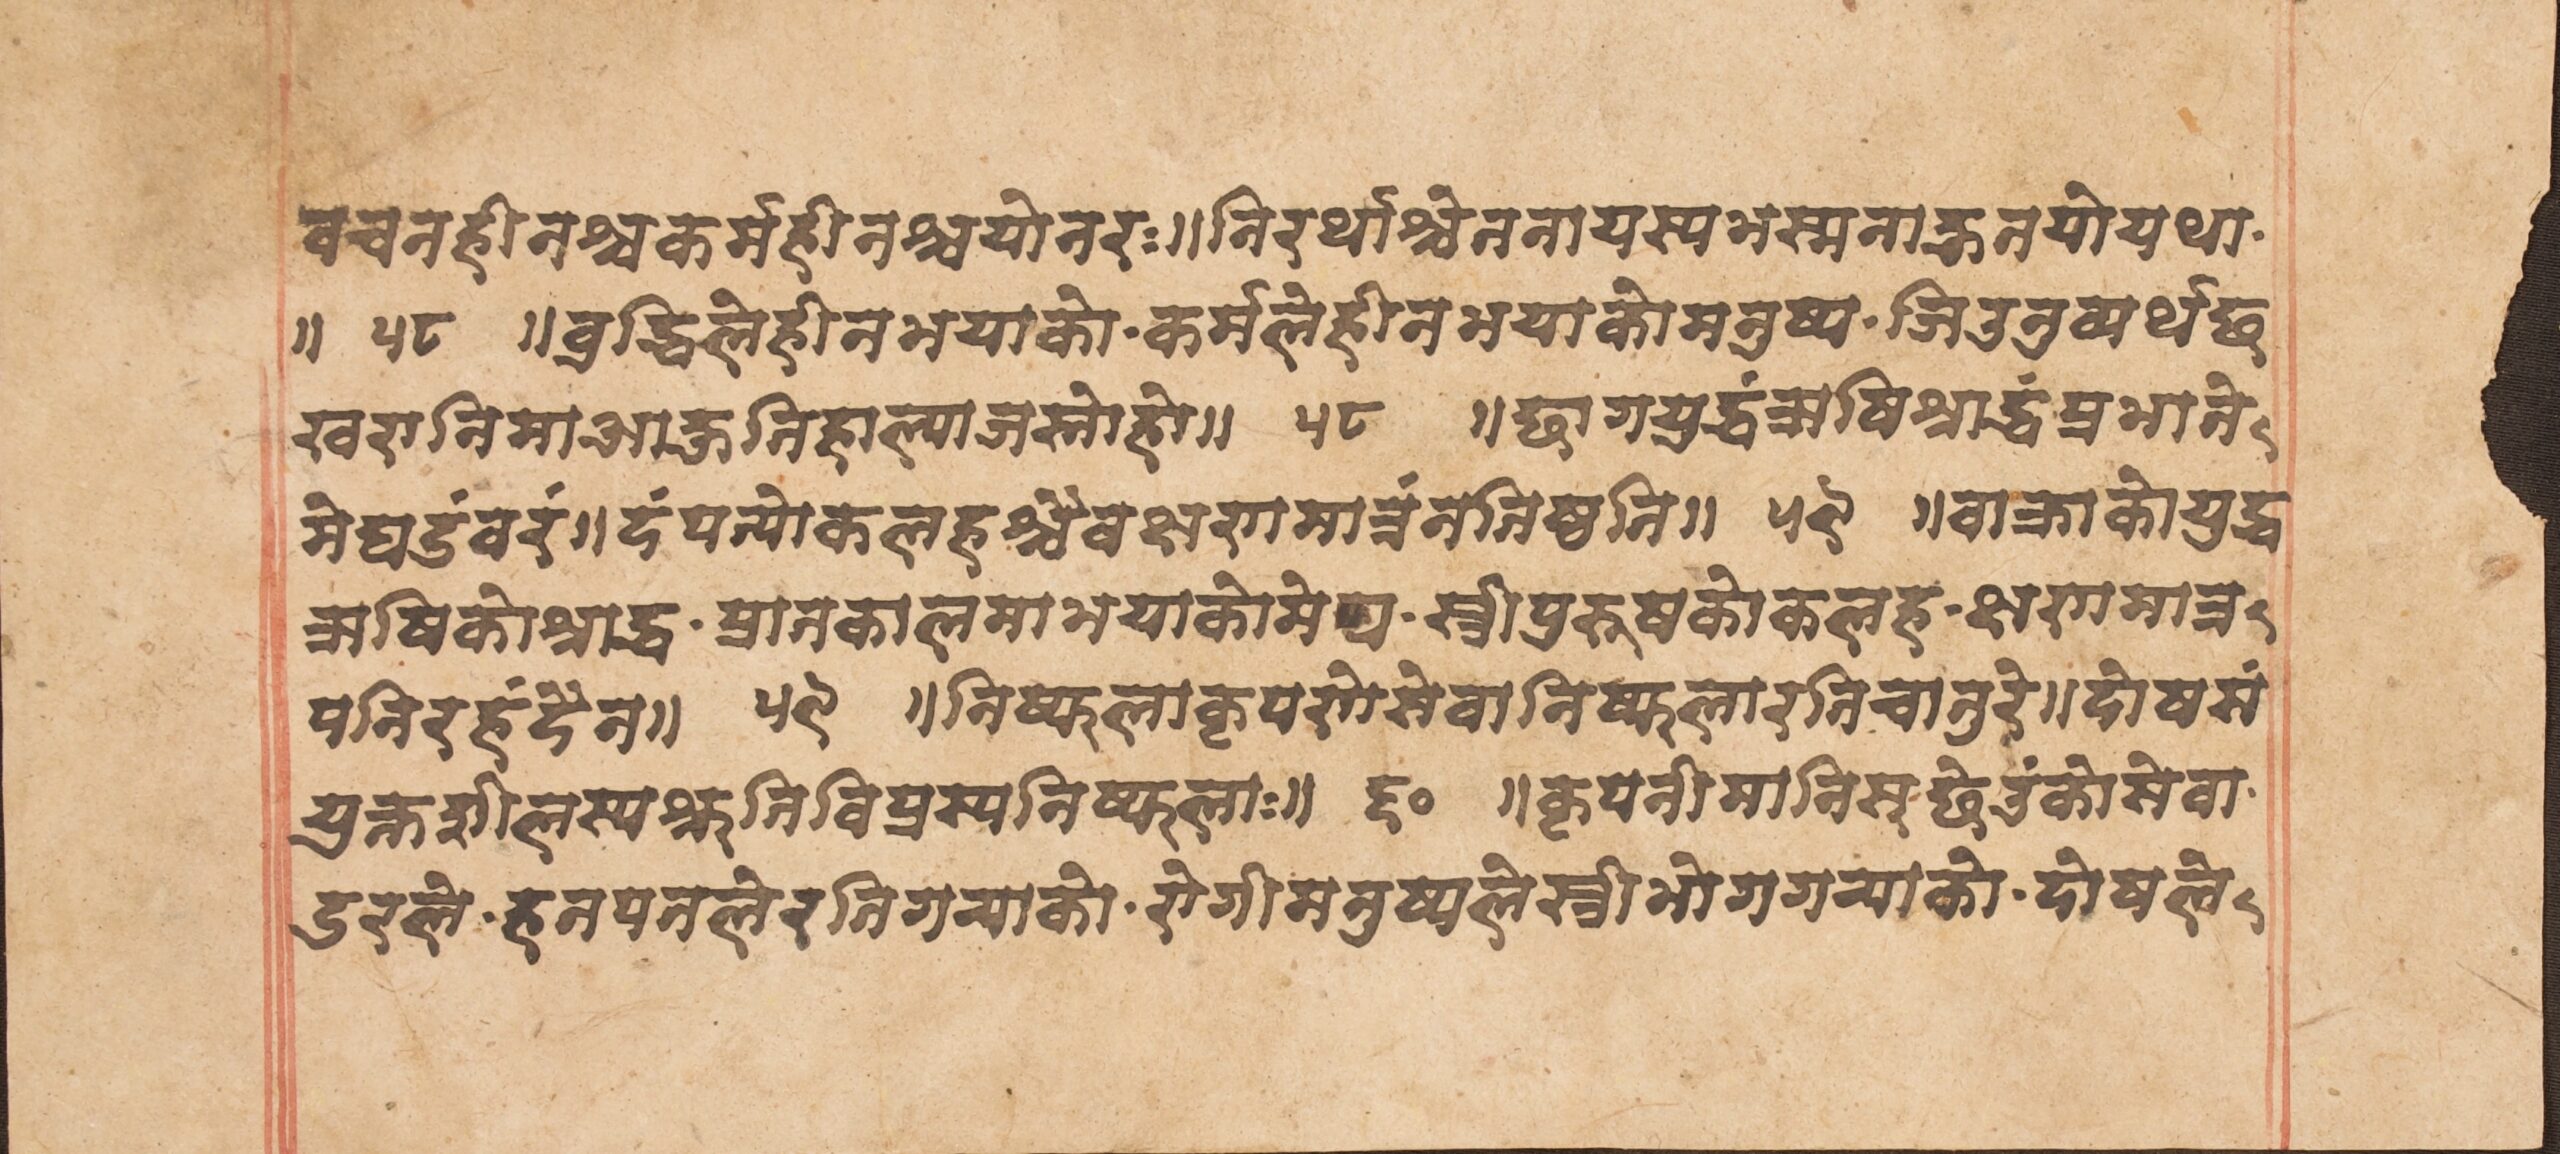 वचनहीनश्चकर्महीनश्चयोनरः॥निरर्थाश्चेतनायस्यभस्मनाहुतयोयथा·
॥ ५८ ॥वुद्धिलेहीनभयाको·कर्मलेहीनभयाकोमनुष्य·जिउनुव्यर्थछ
खरानिमाआहुतिहाल्याजस्तोहो॥ ५८ ॥छागयुद्धंऋषिश्राद्धंप्रभाते
मेघडंवरं॥दंपत्योकलहश्चैवक्षणमात्रंनतिष्ठति॥ ५९ ॥वाक्राकोयुद्ध
ऋषिकोश्राद्ध·प्रातकालमाभयाकोमेघ·स्त्रीपुरुषकोकलह·क्षणमात्र
पनिरहंदैन॥ ५९ ॥निष्फलाकृपणेसेवानिष्फलारतिचातुरे॥दोषसं
युक्तशीलस्यश्रुतिविप्रस्यनिष्फलाः॥ ६० ॥कृपनीमानिस्छेउंकोसेवा·
डरले·हतपतलेरतिगर्‍याको·रोगीमनुष्यलेस्त्रीभोगगर्‍याको·दोषले